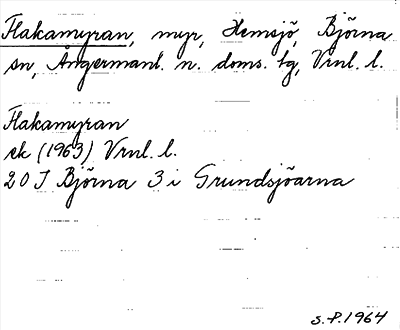 Flakamyran, myr, Hemsjö, Björna
sn, Ångermanl. n. doms. tg, Vrnl. l.
Flakamyran
ek (1963) Vrnl. l.
20 J Björna 3 i Grundsjöarna
S.P. 1964